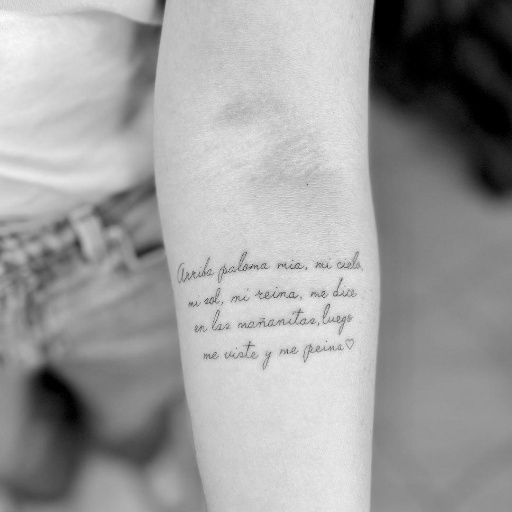 Arriba paloma mia, mi cielo,
mi sol, mi reina, me dice
en las mañanitas, luego
me viste y me peina♡